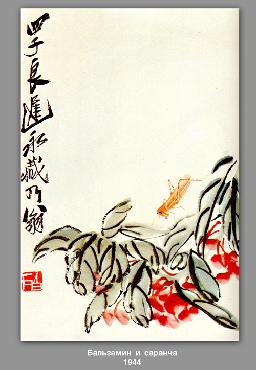 四子良遲永藏乃翁
Бальзамин и саранча
1944